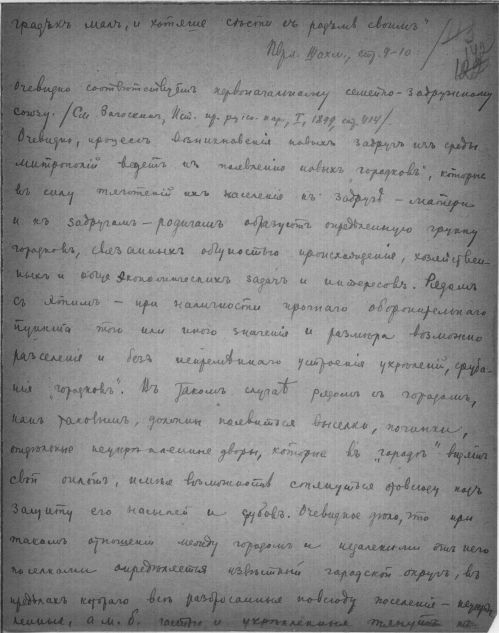 градъкъ малъ, и хотяше сѣсти съ родъмъ своимъ"
стр. 9-10.
очевидно соотвѣтствуетъ первоначальному семейно-задружному
союзу. /См. Загоскин, Ист. пр. рус. нар., I, 1899, стр. 414/
Очевидно, процессъ возникновенія новыхъ задругъ изъ среды
митрополій ведетъ къ появленію новыхъ городковъ, которые
въ силу тяготенія ихъ населенія къ задругѣ - матери
и къ задругамъ - родичамъ образуютъ опредѣленную группу
городковъ, связанныхъ общностью происхожденія, хозяйствен-
ныхъ и обще экономическихъ задачъ и интересовъ. Рядомъ
съ этимъ - при наличности прочнаго оборонительнаго
пункта того или иного значенія и размѣра возможно
разселенія и безъ непремѣннаго устроенія укрѣпленій, сруба-
нія "городковъ". Въ такомъ случаѣ рядомъ съ городомъ,
какъ таковымъ, должны появиться выселки, починки,
отдѣльные неукрѣпленные дворы, которые въ "городѣ" видятъ
свой оплотъ, имѣя возможность стянуться отовсюду подъ
защиту его насыпей и дубовъ. Очевидное дѣло, что при
такомъ отношеніи между городомъ и недалекими отъ него
поселками опредѣляется извѣстный городской округъ, въ
предѣлахъ котораго всѣ разбросанныя повсюду поселенія - неукрѣп
ленные, а м. б. частью и укрѣпленныя тянутъ